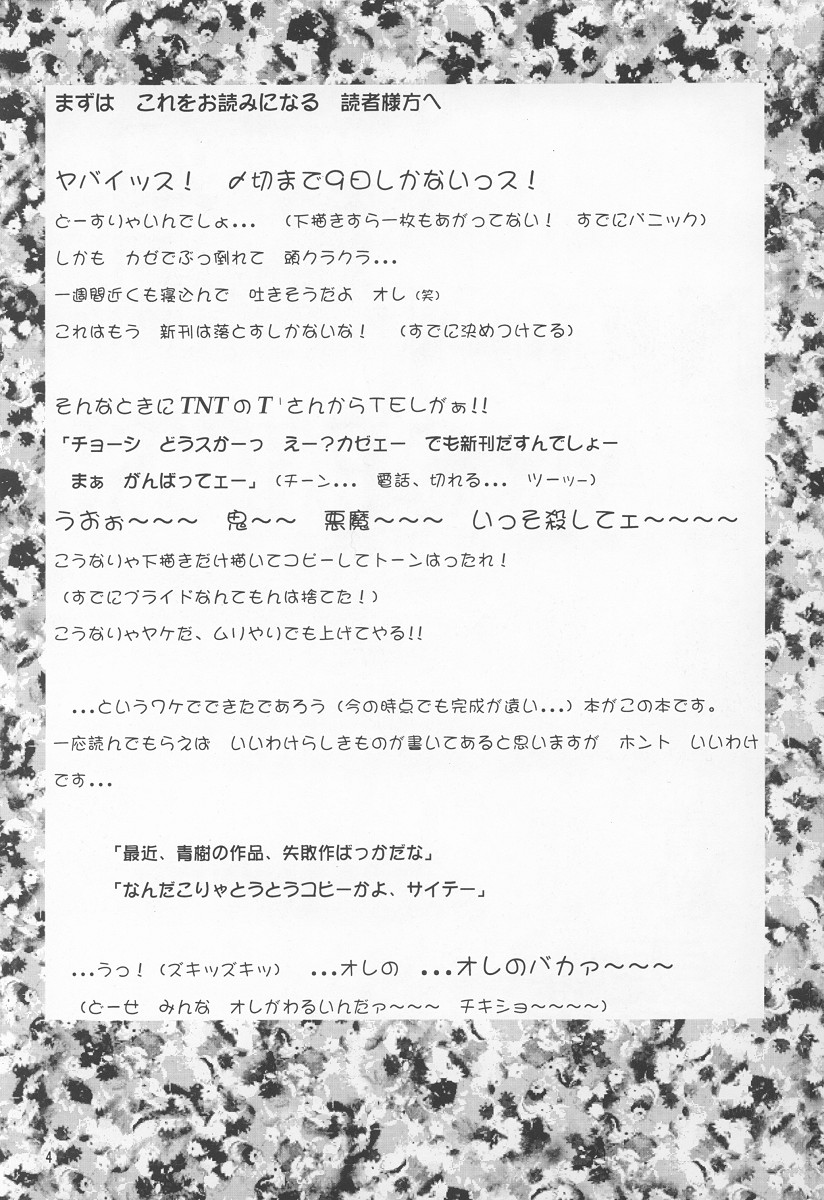 まずは　これをお読みになる　読者様方へ
ヤバイッス！　〆切まで９日しかないっス！
どーすりゃいんでしょ・・・　（下描きすら一枚もあがってない！　すでにパニック）
しかも　カゼでぶっ倒れて　頭クラクラ・・・
一週間近くも寝込んで　吐きそうだよ　オレ（笑）
これはもう　新刊は落とすしかないな！　（すでに決めつけてる）
そんなときにTNTのT'さんからＴＥＬがぁ！！
「チョーシ　どうスかーっ　えー？カゼェー　でも新刊だすんでしょー
まぁ　がんばってェー」（チーン・・・　電話、切れる・・・　ツーッー）
うおぉ～～～　鬼～～　悪魔～～～　いっそ殺してェ～～～～
こうなりゃ下描きだけ描いてコピーしてトーンはったれ！
（すでにプライドなんてもんは捨てた！）
こうなりゃヤケだ、ムリやりでも上げてやる！！
・・・というワケでできたであろう（今の時点でも完成が遠い・・・）本がこの本です。
一応読んでもらえば　いいわけらしきものが書いてあると思いますが　ホント　いいわけ
です・・・
「最近、青樹の作品、失敗作ばっかだな」
「なんだこりゃとうとうコピーかよ、サイテー」
・・・うっ！（ズキッズキッ）　・・・オレの　・・・オレのバカァ～～～
（どーせ　みんな　オレがわるいんだァ～～～　チキショ～～～～）
4